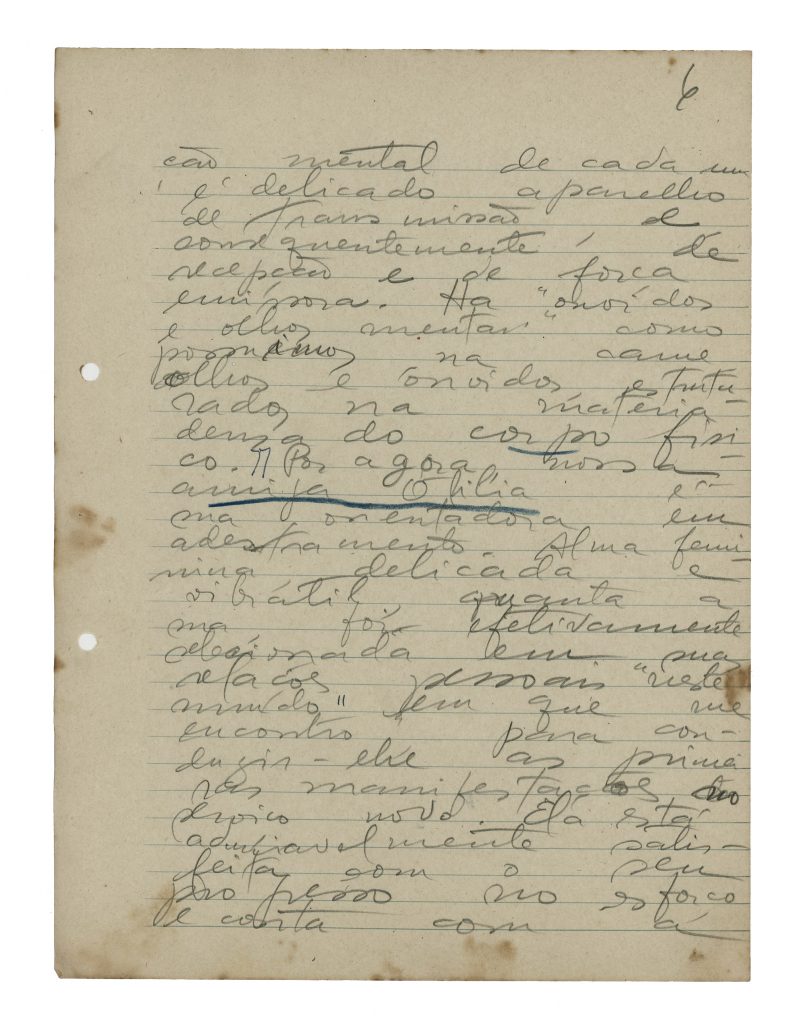 6
cão mental de cada um
é delicado aparelho
de transmissão e
consequentemente, de
recepção e de forca
emissora. Ha "ouvidos
e olhos mentais" como
possuimos na carne
olhos e ouvidos estrutu-
rados na materia
densa do corpo fisi-
co. Por agora nossa
amiga Otilia é
ma orientadora em
adestramento. Alma femi-
nina delicada e
vibratil, quanta a
ma foi efetivamente
selecionada em suas
relações pessoais "neste
mundo" em que me
encontro para con-
duzir-lhe as primei
ras manifestações no
serviço novo. Ela está
admiravelmente satis-
feita com o seu
progresso no esforço
e conta com a